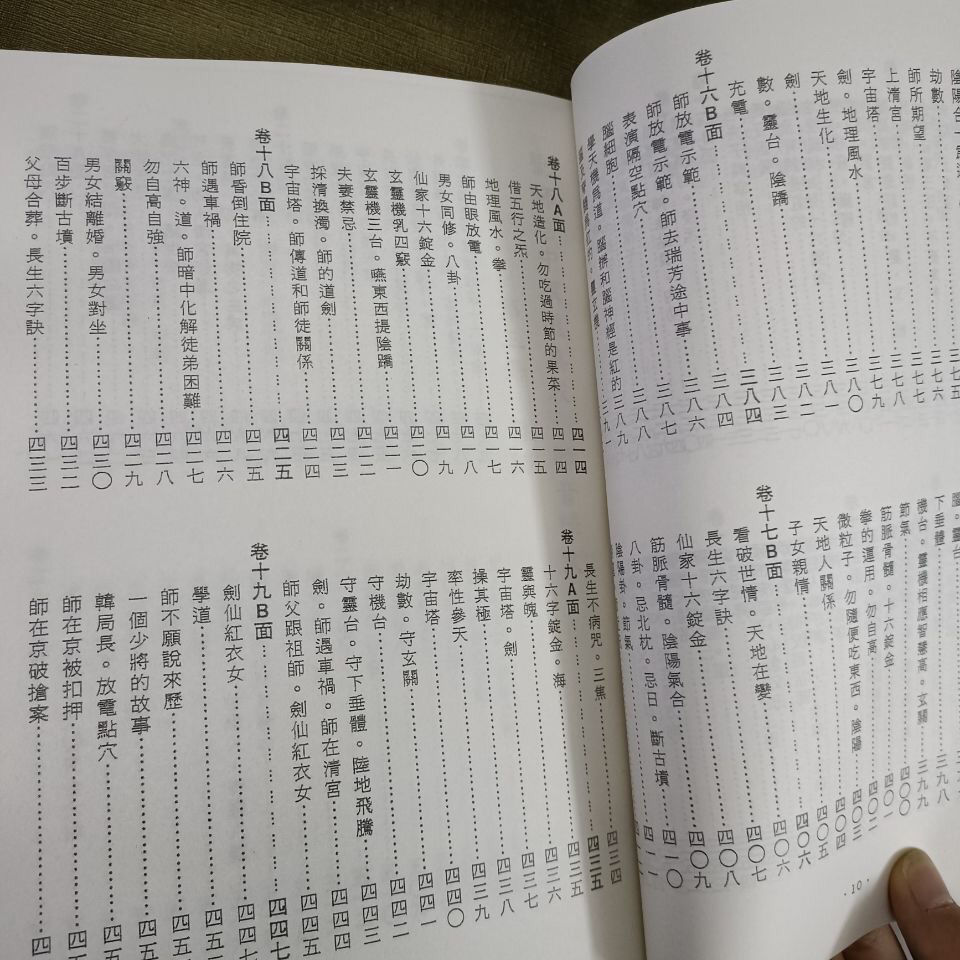 劫數⋯⋯三七六
師所期望⋯⋯三七七
上清宮⋯⋯三七八
宇宙塔⋯⋯三七九
劍。地理風水⋯⋯三八〇
天地生化⋯⋯三八一
劍⋯⋯三八二
數。靈台。陰蹻⋯⋯三八三
充電⋯⋯三八四
卷十六B面⋯⋯三八四
師放電示範⋯⋯三八六
師放電示範。師去瑞芳途中事⋯⋯三八六
表演隔空點穴⋯⋯三八七
腦細胞⋯⋯三八八
學天機為道。腦擀和腦神經是紅的⋯⋯三八九
下垂體⋯⋯三九八
機台。靈機相應智慧高。玄關⋯⋯三九九
節氣⋯⋯四〇〇
筋脈骨髓。十六錠金⋯⋯四〇一
拳的運用。勿自高⋯⋯四〇二
微粒子。勿隨便吃東西。陰陽⋯⋯四〇三
天地人關係⋯⋯四〇四
子女親情⋯⋯四〇五
卷十七B面⋯⋯四〇六
看破世情。天地在變⋯⋯四〇七
長生六字訣⋯⋯四〇八
仙家十六錠金⋯⋯四〇九
筋脈骨髓。陰陽氣合⋯⋯四一〇
八卦。忌北枕。忌日。斷古墳⋯⋯四一一
陰陽卦。節氣
·10·
卷十八A面⋯⋯四一四
天地造化。勿吃過時節的果菜⋯⋯四一四
借五行之炁⋯⋯四一五
地理風水。拳⋯⋯四一六
師由眼放電⋯⋯四一七
男女同修。八卦⋯⋯四一八
仙家十六錠金⋯⋯四一九
玄靈機乳四竅⋯⋯四二〇
玄靈機三台。嚥東西提陰蹻⋯⋯四二一
夫妻禁忌⋯⋯四二二
採清換濁。師的道劍⋯⋯四二三
宇宙塔。師傳道和師徒關係⋯⋯四二四
卷十八B面⋯⋯四二五
師昏倒住院⋯⋯四二五
師遇車禍⋯⋯四二六
六神。道。師暗中化解徒弟困難⋯⋯四二七
勿自高自強⋯⋯四二八
關竅⋯⋯四二九
男女結離婚。男女對坐⋯⋯四三〇
百步斷古墳⋯⋯四三二
父母合葬。長生六字訣⋯⋯四三三
長生不病咒。三焦⋯⋯四三四
卷十九A面⋯⋯四三五
十六字錠金。海⋯⋯四三五
靈與魄⋯⋯四三六
宇宙塔。劍⋯⋯四三七
操其極⋯⋯四三八
率性參天⋯⋯四三九
宇宙塔⋯⋯四四〇
劫數。守玄關⋯⋯四四一
守機台⋯⋯四四二
守靈台。守下垂體。陸地飛騰⋯⋯四四三
劍。師遇車禍。師在清宮⋯⋯四四四
師父跟祖師。劍仙紅衣女⋯⋯四四五
卷十九B面⋯⋯四四七
劍仙紅衣女⋯⋯四四七
學道
師不願說來歷
一個少將的故事
韓局長。放電點穴
師在京被扣押
師在京破搶案